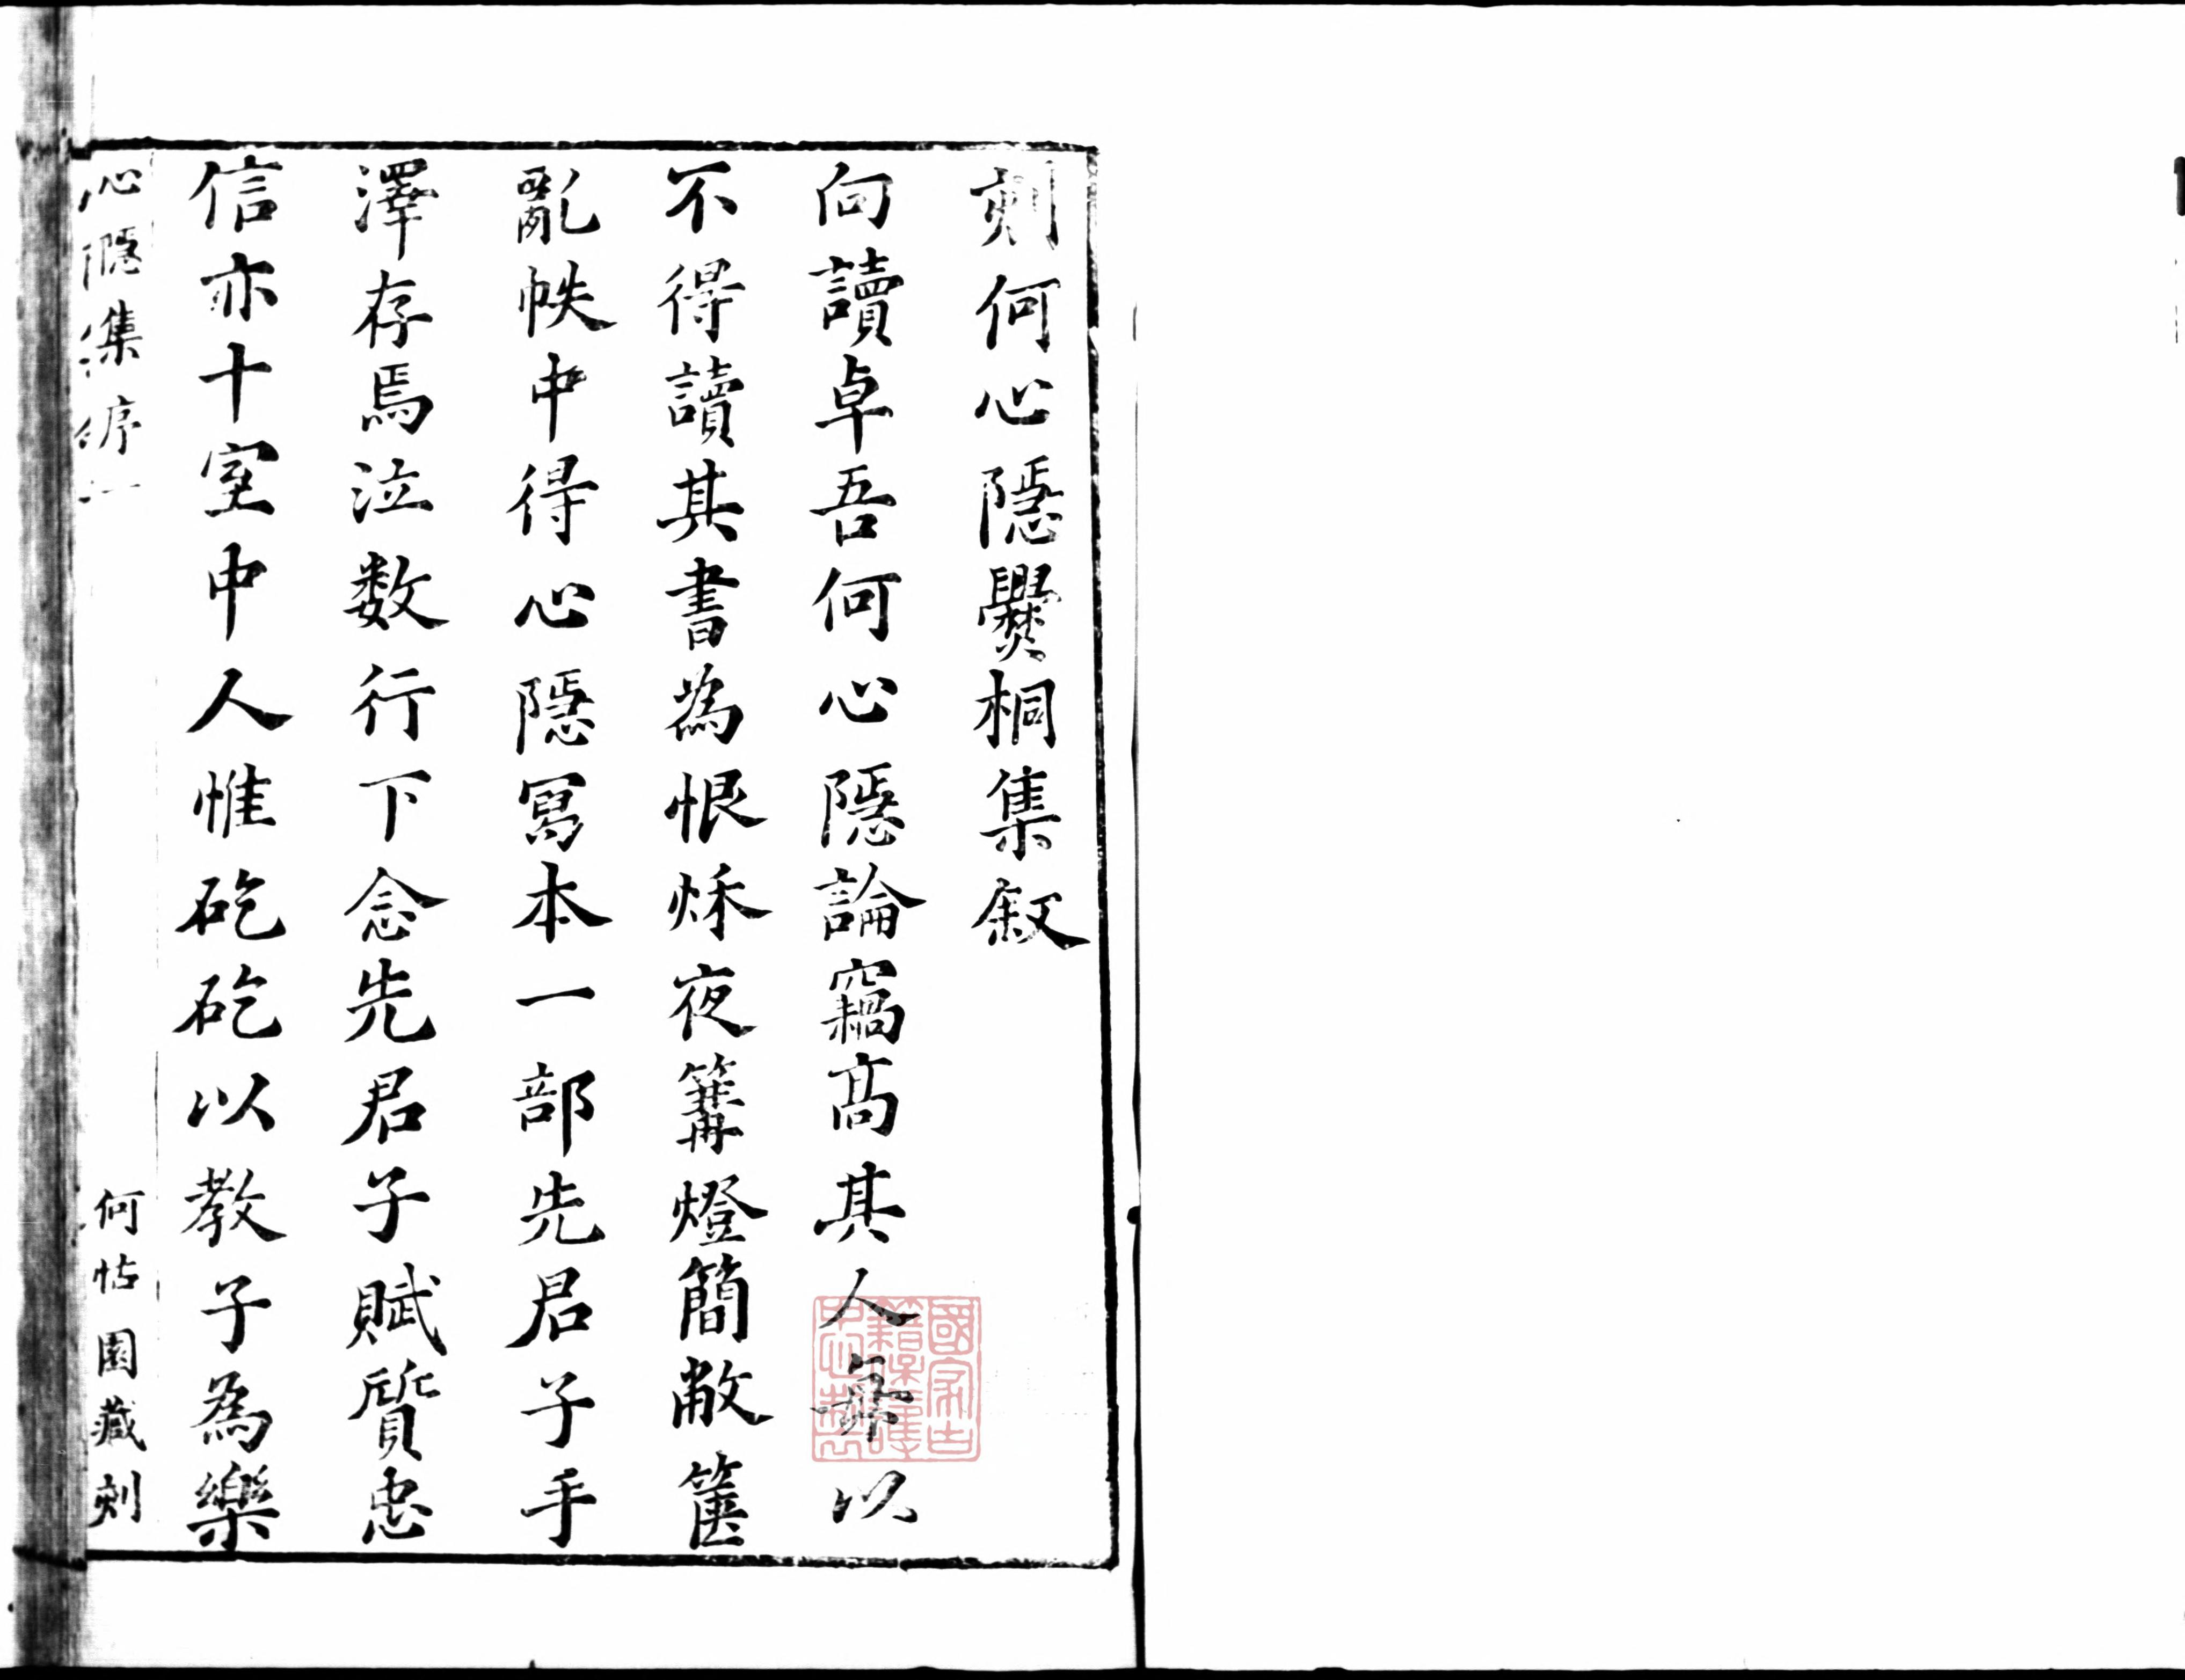 刻何心隱爨桐集敘
向讀卓吾何心隱論竊高其人每以
不得讀其書為恨秌夜篝燈簡敝篋
亂帙中得心隱寫本一部先君子手
澤存焉泣数行下念先君子賦質忠
信亦十室中人惟矻矻以教子為樂
心隱集序一
何怙園藏刻